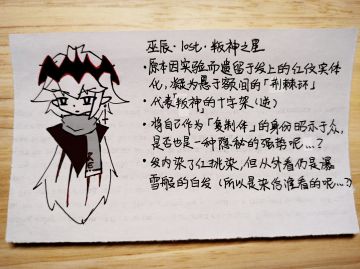 巫辰·lost·叛神之星
·原本因实验而遗留于发上的红纹实体
化,凝为悬于额间的「荆棘环」
·代表「叛神」的十字架(逆)
·将自己作为「复制体」的身份昭示于众,
是否也是一种隐秘的强势呢…?
·发内染了红挑染,但从外看仍是瀑
雪般的白发(所以是染给谁看的呢…?)